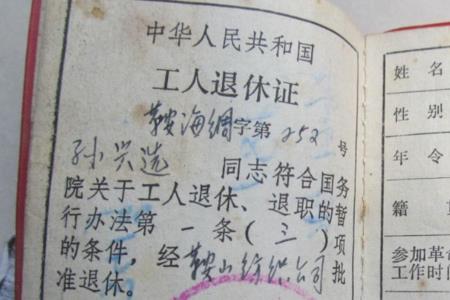 中华人民共和国
工人退休证
鞍海绸字第252号
孙兴选 同志符合国务
院关于工人退休、退职的暂
行办法第一条(三)项
的条件,经鞍山纺织公司批
准退休。
姓名
性别
年令
籍
参加革
工作时